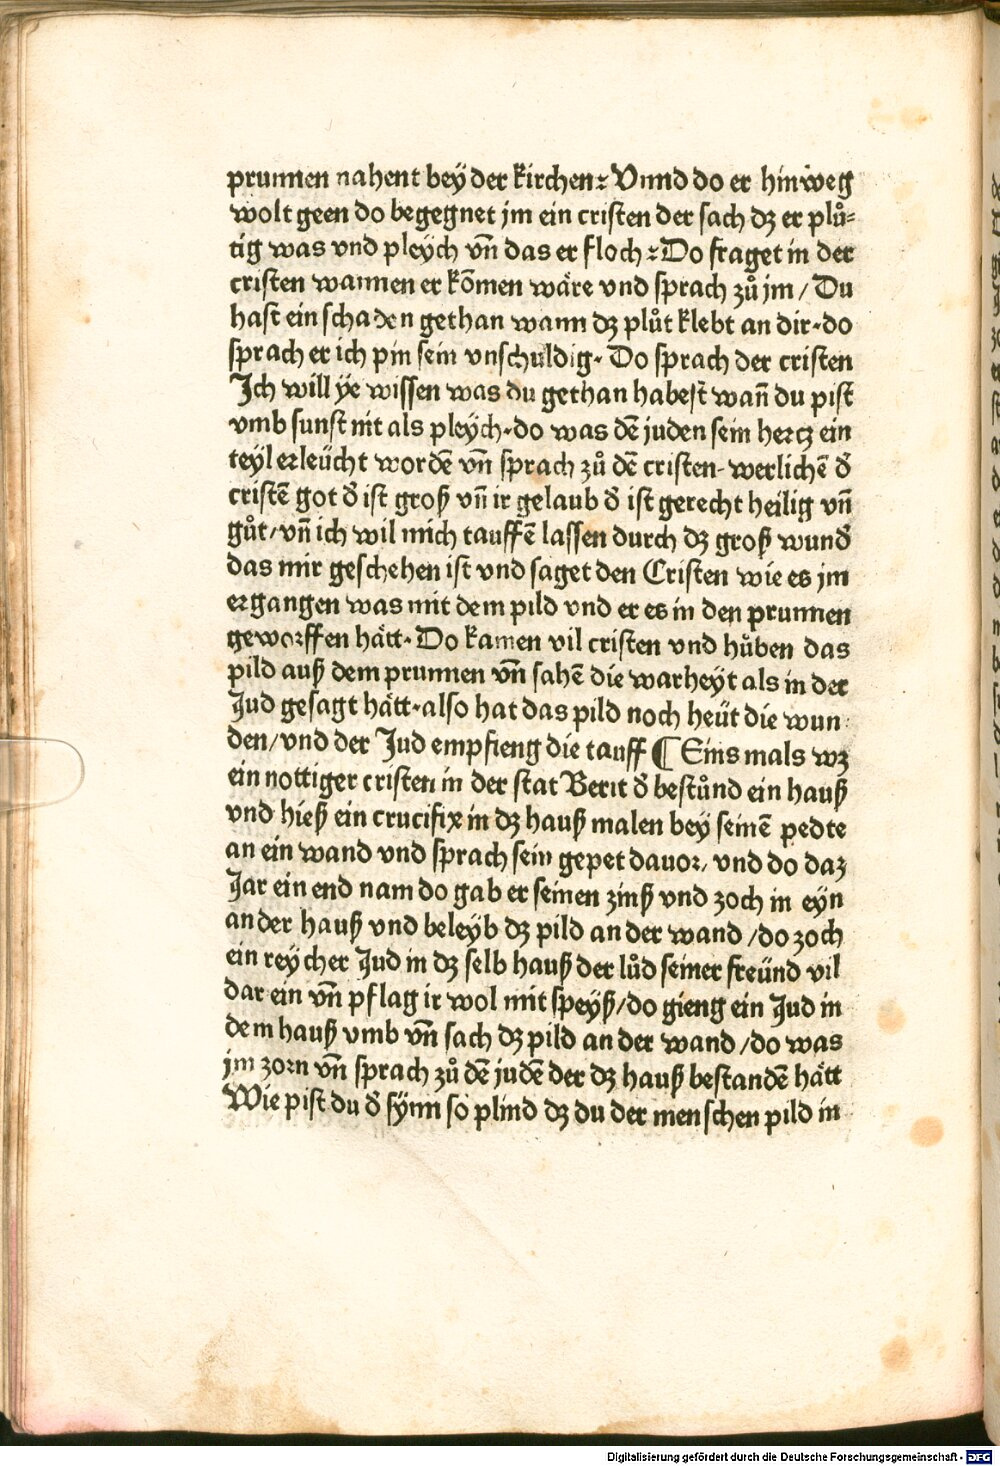 prunnen nahent bey der kirchen: Vnnd do er hinweg
wolt geen do begegnet jm ein cristen der sach dz er plů=
tig was vnd pleych vn̄ das er floch: Do fraget in der
cristen wannen er kōmen wäre vnd sprach zů jm/ Du
hast ein schaden gethan wann dz plůt klebt an dir. do
sprach er ich pin sein vnschuldig. Do sprach der cristen
Ich will ÿe wissen was du gethan habest wan̄ du pist
vmb sunst nit als pleÿch. do was dē juden sein hercz ein
teÿl erleücht wordē vn̄ sprach zů dē cristen. werlichē đ
cristē got đ ist groß vn̄ ir gelaub đ ist gerecht heilig vn̄
gůt/ vn̄ ich wil mich tauffē lassen durch dz groß wunđ
das mir geschehen ist vnd saget den Cristen wie es jm
ergangen was mit dem pild vnd er es in den prunnen
geworffen hätt. Do kamen vil cristen vnd hůben das
pild auß dem prunnen vn̄ sahē die warheÿt als in der
Jud gesagt hätt. also hat das pild noch heüt die wun
den/ vnd der Jud empfieng die tauff ¶ Eins mals wz
ein nottiger cristen in der stat Berit đ bestůnd ein hauß
vnd hieß ein crucifix in dz hauß malen beÿ seinē pedte
an ein wand vnd sprach sein gepet dauor, vnd do daz
Jar ein end nam do gab er seinen zinß vnd zoch in eÿn
ander hauß vnd beleÿb dz pild an der wand /do zoch
ein reÿcher Jud in dz selb hauß der lůd seiner freünd vil
dar ein vn̄ pflag ir wol mit speÿß/ do gieng ein Jud in
dem hauß vmb vn̄ sach dz pild an der wand /do was
jm zorn vn̄ sprach zů dē judē der dz hauß bestandē hätt
Wie pist du đ sÿnn so plind dz du der menschen pild in
Digitalisierung gefördert durch die Deutsche Forschungsgemeinschaft - DFG